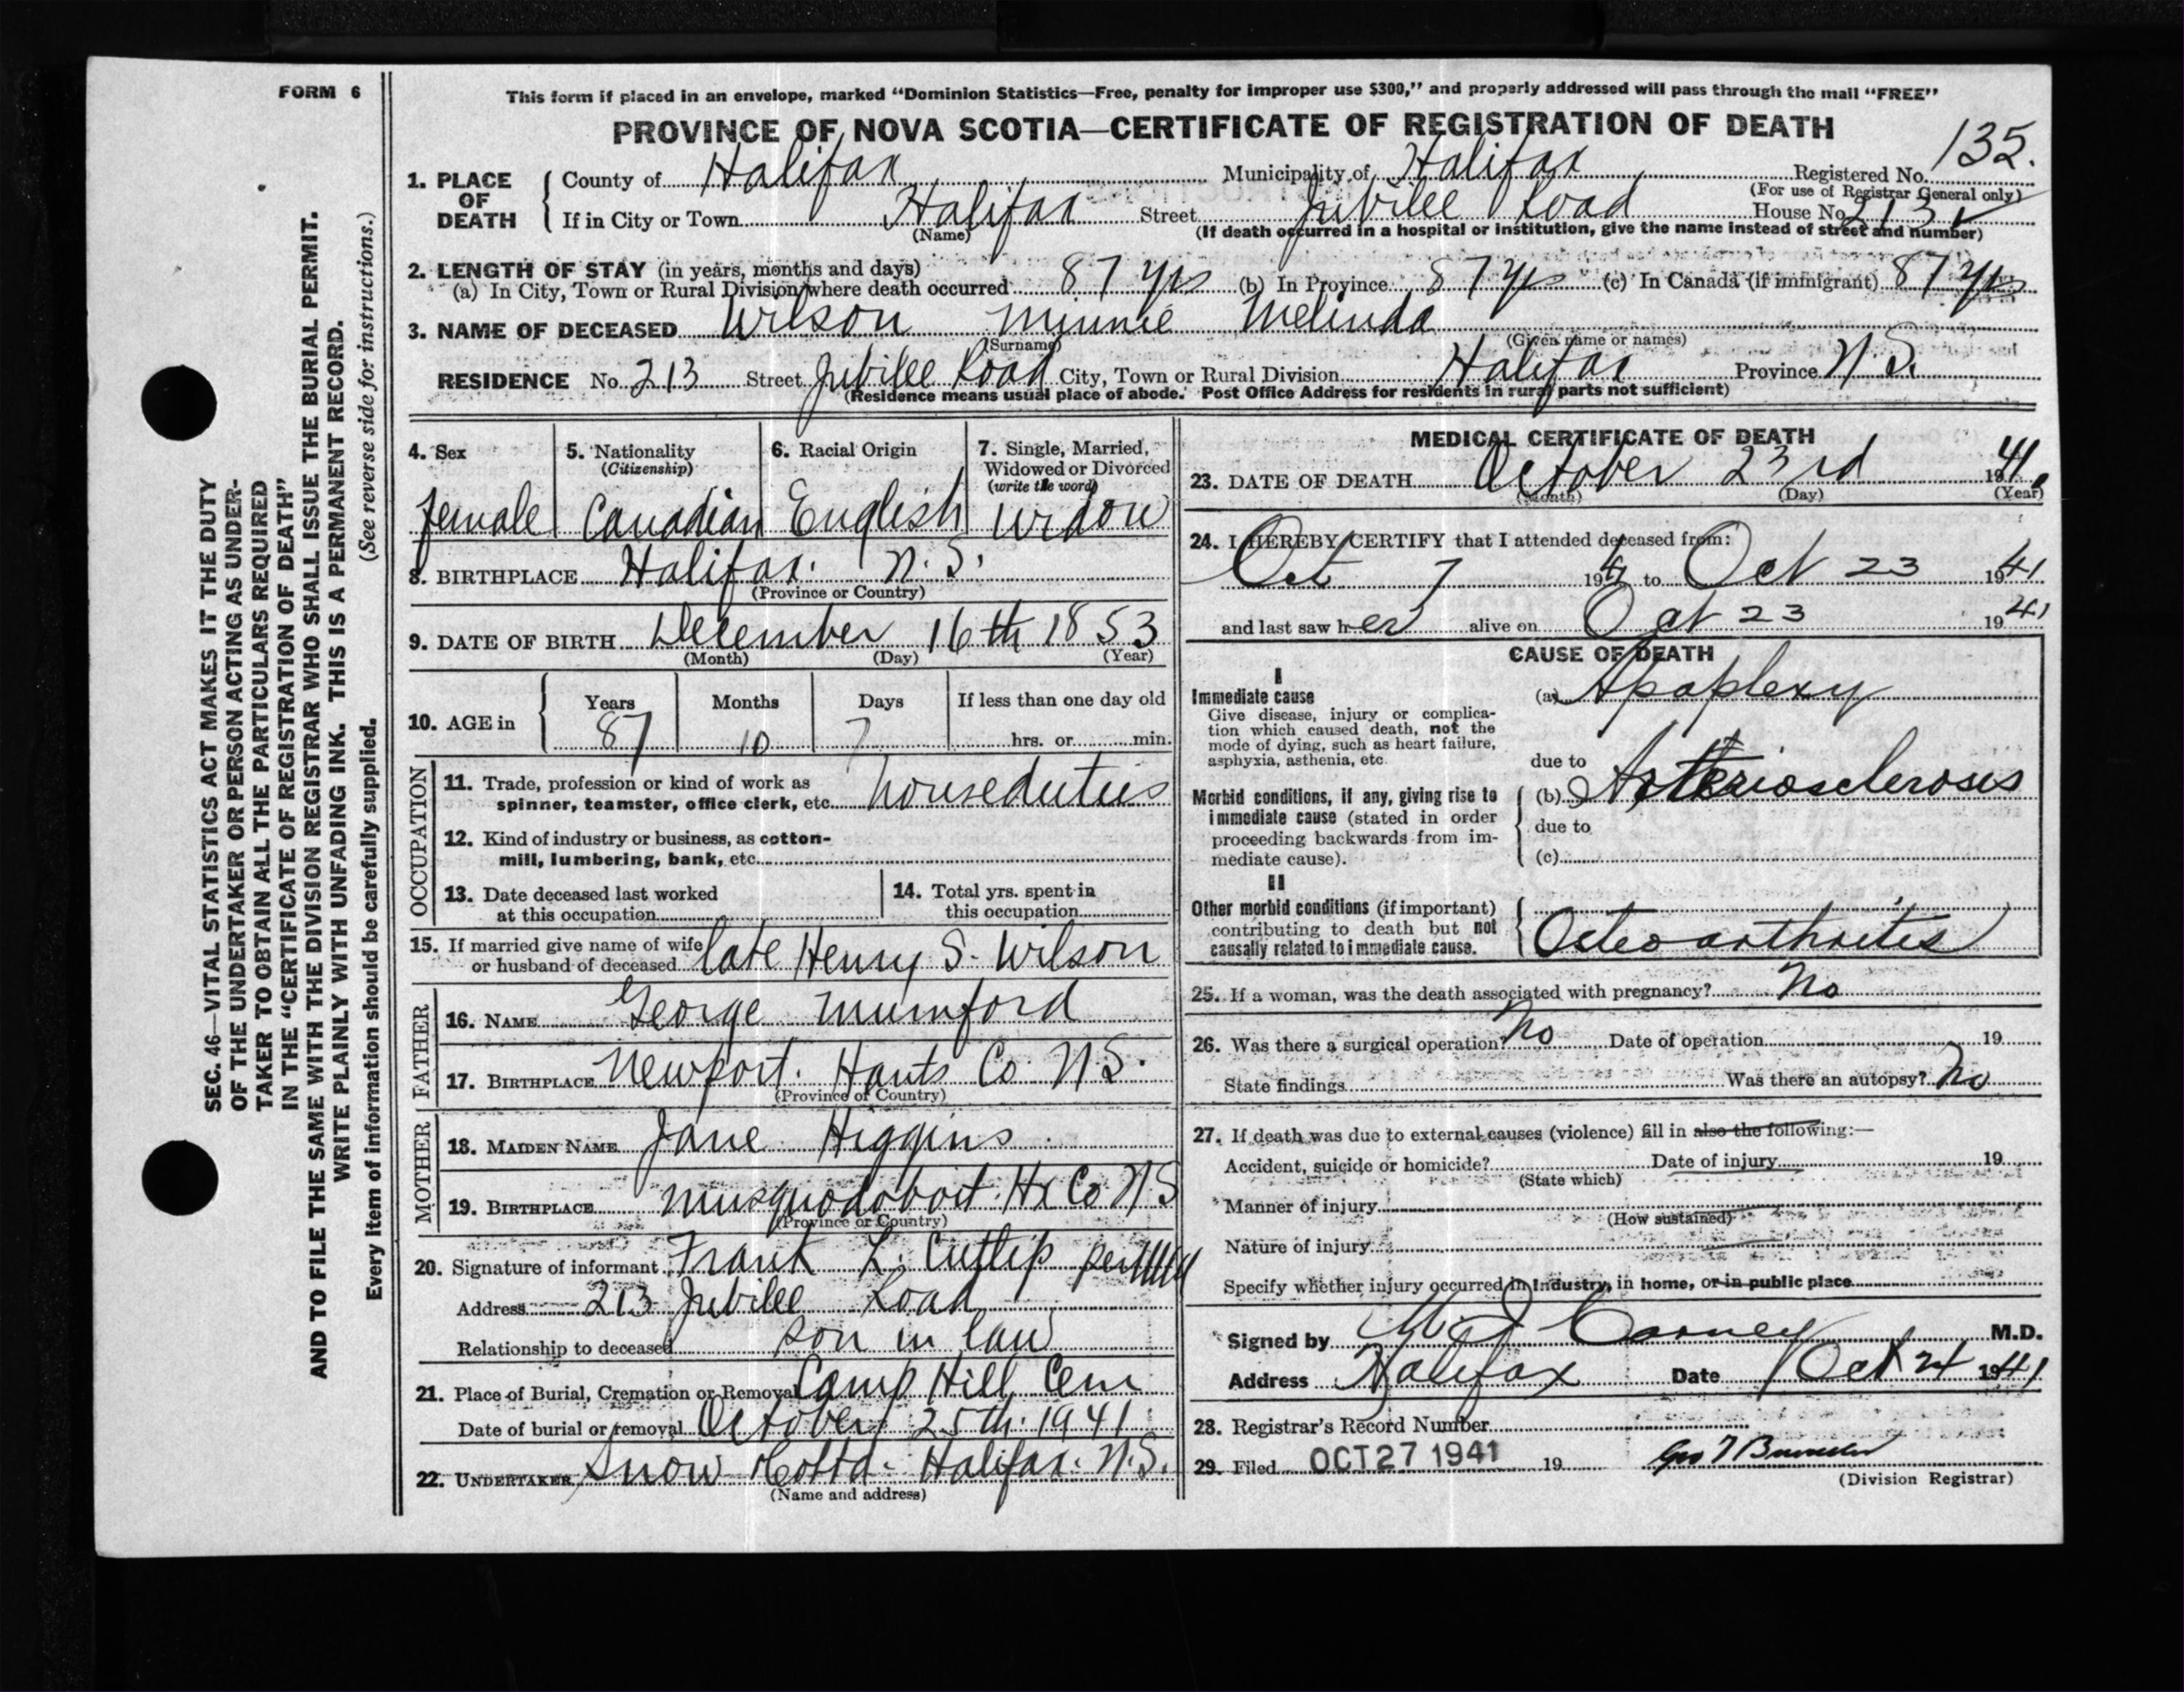 FORM 6
This form if placed in an envelope, marked "Dominion Statistics—Free, penalty for improper use $300," and properly addressed will pass through the mail "FREE"
PROVINCE OF NOVA SCOTIA—CERTIFICATE OF REGISTRATION OF DEATH
135.
1. PLACE OF DEATH
County of Halifax Municipality of Halifax Registered No.
(For use of Registrar General only)
If in City or Town Halifax Street Jubilee Road House No. 213
(Name) (If death occurred in a hospital or institution, give the name instead of street and number)
2. LENGTH OF STAY (in years, months and days)
(a) In City, Town or Rural Division where death occurred 87 yrs (b) In Province 87 yrs (c) In Canada (if immigrant) 87 yrs
3. NAME OF DECEASED Wilson Minnie Melinda
(Surname) (Given name or names)
RESIDENCE No. 213 Street Jubilee Road City, Town or Rural Division Halifax Province N.S.
(Residence means usual place of abode. Post Office Address for residents in rural parts not sufficient)
4. Sex
female
5. Nationality
(Citizenship)
Canadian
6. Racial Origin
English
7. Single, Married,
Widowed or Divorced
(write the word)
widow
8. BIRTHPLACE Halifax. N.S.
(Province or Country)
9. DATE OF BIRTH December 16th 1853
(Month) (Day) (Year)
10. AGE in
Years Months Days If less than one day old
87 10 7 hrs. or min.
OCCUPATION
11. Trade, profession or kind of work as
spinner, teamster, office clerk, etc. houseduties
12. Kind of industry or business, as cotton-
mill, lumbering, bank, etc.
13. Date deceased last worked
at this occupation
14. Total yrs. spent in
this occupation
15. If married give name of wife
or husband of deceased late Henry S. Wilson
FATHER
16. NAME George Mumford
17. BIRTHPLACE Newport. Hants Co. N.S.
(Province or Country)
MOTHER
18. MAIDEN NAME Jane Higgins
19. BIRTHPLACE Musquodoboit. Hx Co N.S
(Province or Country)
20. Signature of informant Frank L. Cutlip per
Address 213 Jubilee Road
Relationship to deceased son in law
21. Place of Burial, Cremation or Removal Camp Hill Cem
Date of burial or removal October 25th. 1941
22. UNDERTAKER Snow & Co Ltd. Halifax. N.S.
(Name and address)
MEDICAL CERTIFICATE OF DEATH
23. DATE OF DEATH October 23rd 1941.
(Month) (Day) (Year)
24. I HEREBY CERTIFY that I attended deceased from:
Oct 7 1941 to Oct 23 1941
and last saw her alive on Oct 23 1941
CAUSE OF DEATH
I
Immediate cause
Give disease, injury or complica-
tion which caused death, not the
mode of dying, such as heart failure,
asphyxia, asthenia, etc.
(a) Apoplexy
due to
Morbid conditions, if any, giving rise to
immediate cause (stated in order
proceeding backwards from im-
mediate cause).
(b) Arteriosclerosis
due to
(c)
II
Other morbid conditions (if important)
contributing to death but not
causally related to immediate cause.
Osteoarthritis
25. If a woman, was the death associated with pregnancy? No
26. Was there a surgical operation? No Date of operation 19
State findings Was there an autopsy? No
27. If death was due to external causes (violence) fill in also the following:—
Accident, suicide or homicide? Date of injury 19
(State which)
Manner of injury
(How sustained)
Nature of injury
Specify whether injury occurred in industry, in home, or in public place
Signed by Carney M.D.
Address Halifax Date Oct 24 1941
28. Registrar's Record Number
29. Filed OCT 27 1941 19
(Division Registrar)
SEC. 46—VITAL STATISTICS ACT MAKES IT THE DUTY
OF THE UNDERTAKER OR PERSON ACTING AS UNDER-
TAKER TO OBTAIN ALL THE PARTICULARS REQUIRED
IN THE "CERTIFICATE OF REGISTRATION OF DEATH"
AND TO FILE THE SAME WITH THE DIVISION REGISTRAR WHO SHALL ISSUE THE BURIAL PERMIT.
WRITE PLAINLY WITH UNFADING INK. THIS IS A PERMANENT RECORD.
(See reverse side for instructions.)
Every item of information should be carefully supplied.